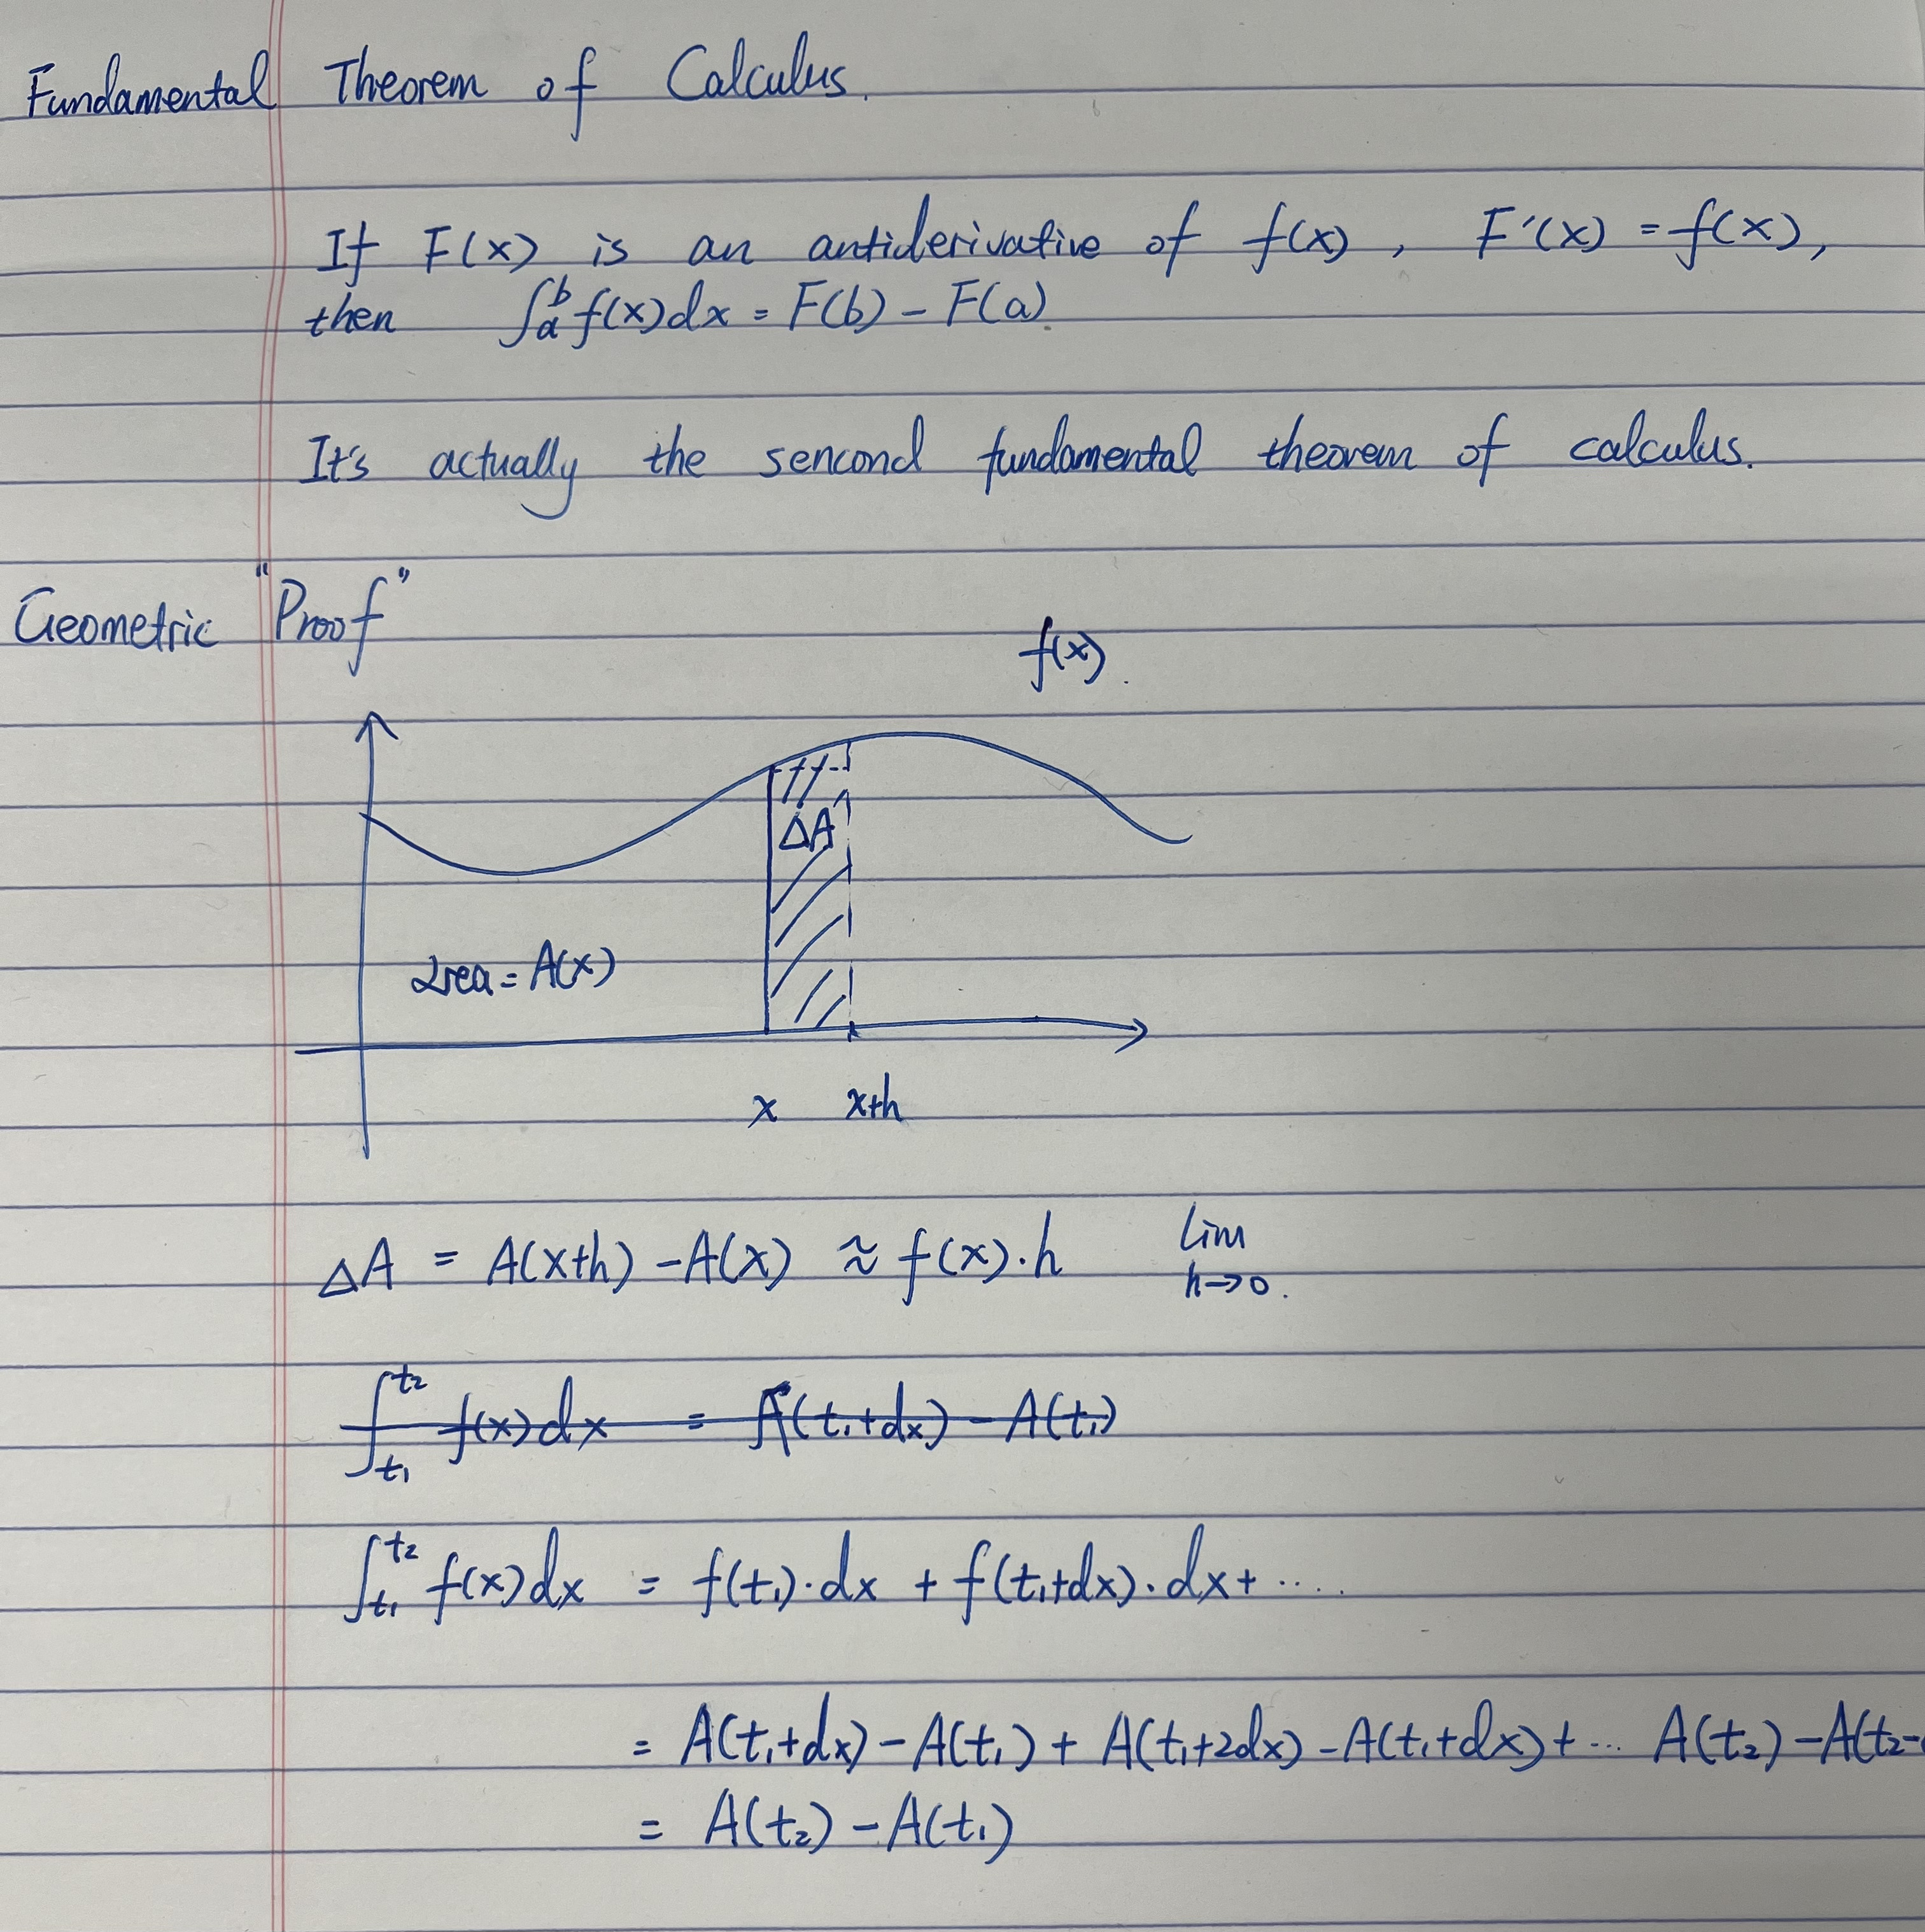 Fundamental Theorem of Calculus.
If F(x) is an antiderivative of f(x), F'(x) = f(x),
then ∫ₐᵇ f(x)dx = F(b) - F(a).
It's actually the sencond fundamental theorem of calculus.
Geometric "Proof"
f(x).
ΔA
area = A(x)
x x+h
ΔA = A(x+h) - A(x) ≈ f(x)·h lim h→0.
∫_{t₁}^{t₂} f(x)dx = A(t₁+dx) - A(t₁)
∫_{t₁}^{t₂} f(x)dx = f(t₁)·dx + f(t₁+dx)·dx+ ....
= A(t₁+dx) - A(t₁) + A(t₁+2dx) - A(t₁+dx) + ... A(t₂) - A(t₂-
= A(t₂) - A(t₁)